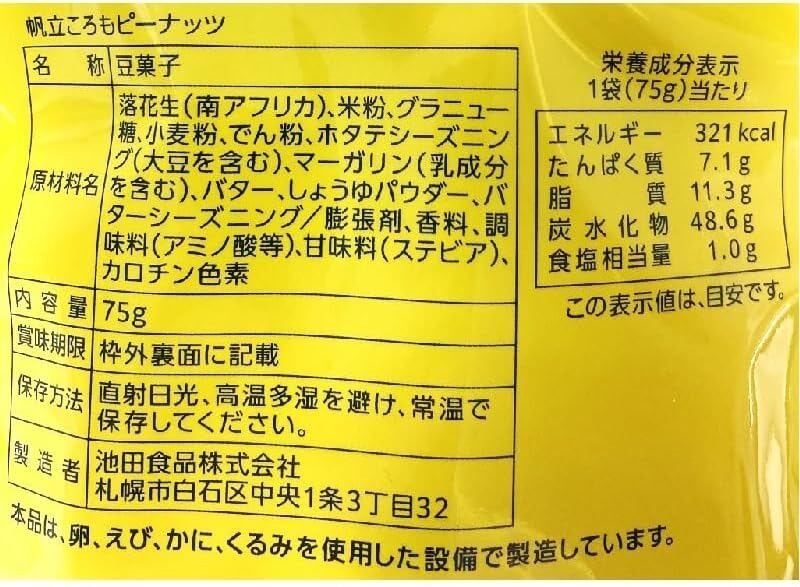 帆立ころもピーナッツ
名 称 豆菓子
原材料名
落花生(南アフリカ)、米粉、グラニュー
糖、小麦粉、でん粉、ホタテシーズニン
グ(大豆を含む)、マーガリン(乳成分
を含む)、バター、しょうゆパウダー、バ
ターシーズニング/膨張剤、香料、調
味料(アミノ酸等)、甘味料(ステビア)、
カロチン色素
内容量 75g
賞味期限 枠外裏面に記載
保存方法 直射日光、高温多湿を避け、常温で
保存してください。
製造者 池田食品株式会社
札幌市白石区中央1条3丁目32
本品は、卵、えび、かに、くるみを使用した設備で製造しています。
栄養成分表示
1袋(75g)当たり
エネルギー 321kcal
たんぱく質 7.1g
脂 質 11.3g
炭水化物 48.6g
食塩相当量 1.0g
この表示値は、目安です。